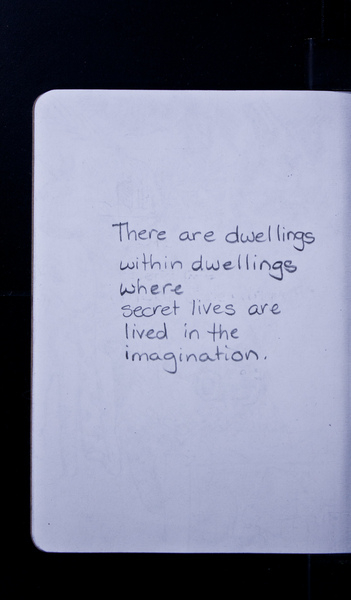 There are dwellings
within dwellings
where
secret lives are
lived in the
imagination.